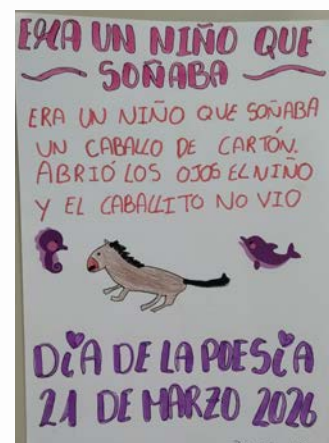 ERA UN NIÑO QUE
SOÑABA
ERA UN NIÑO QUE SOÑABA
UN CABALLO DE CARTÓN.
ABRIÓ LOS OJOS EL NIÑO
Y EL CABALLITO NO VIO
DÍA DE LA POESÍA
21 DE MARZO 2026